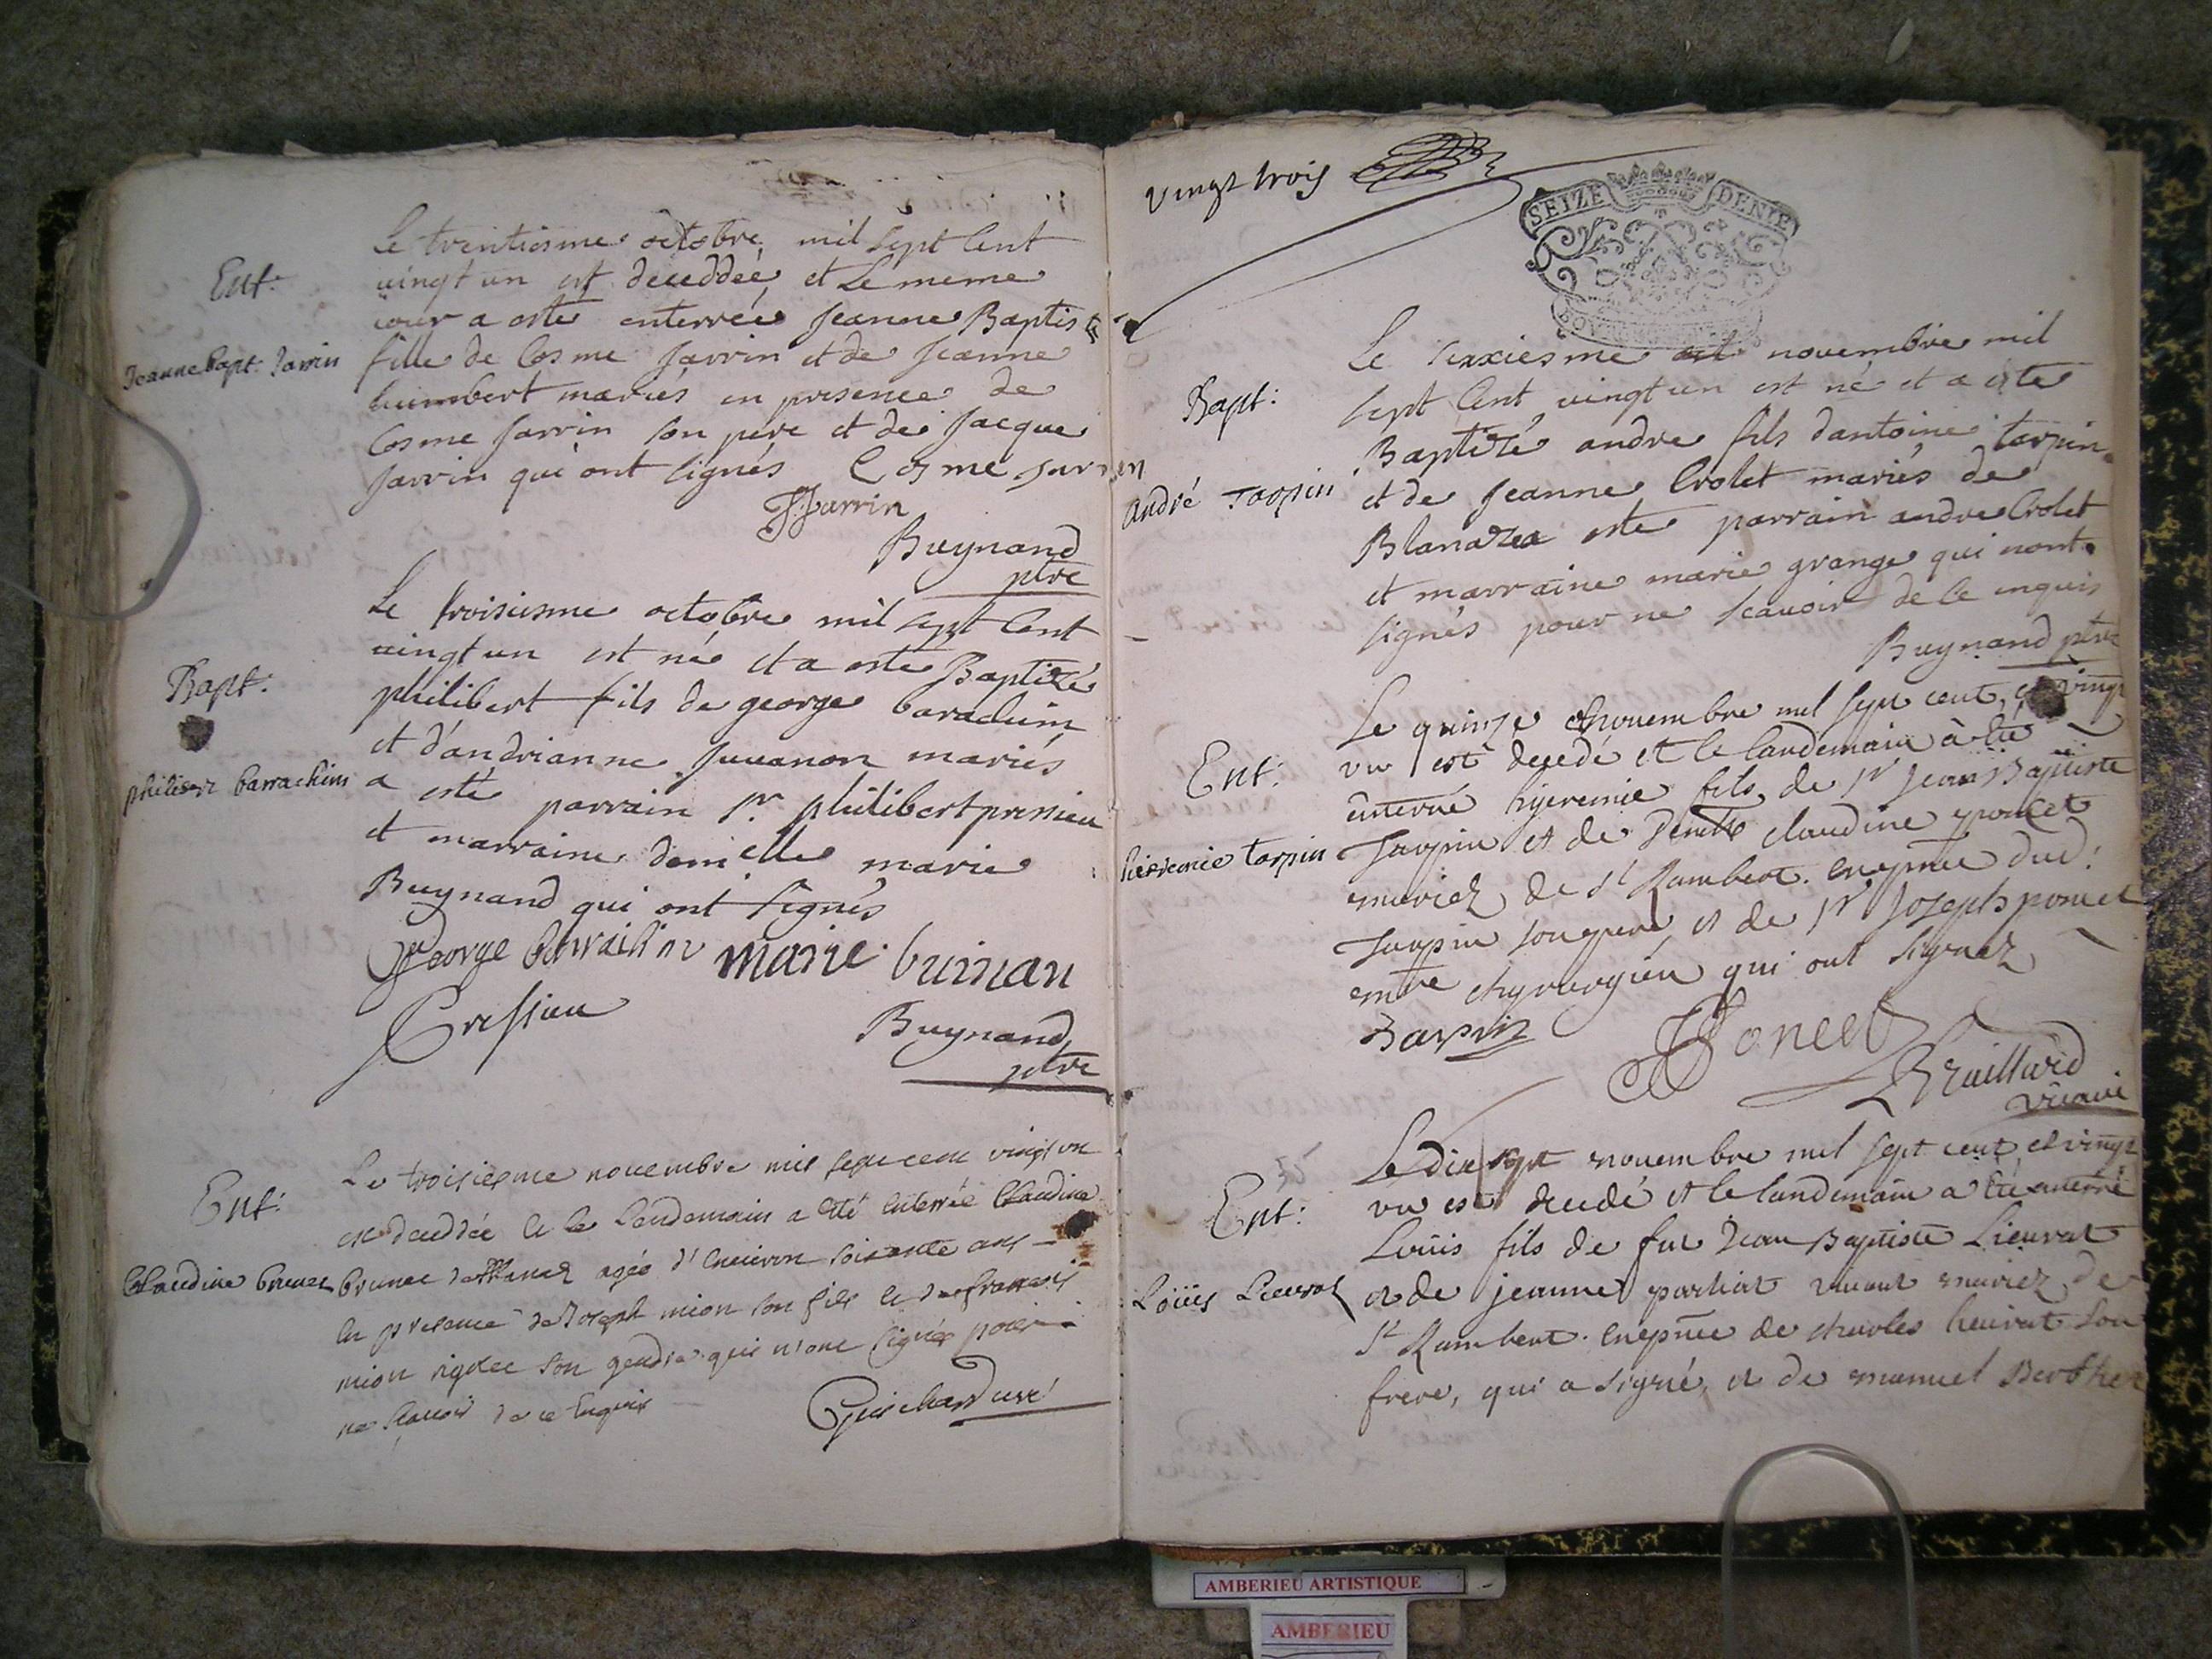 Ent.
Jeanne Bapt. Jarrin
Le trentiesme octobre mil sept cent
vingt un est deceddée et le meme
jour a esté enterrée Jeanne Baptiste
fille de Cosme Jarrin et de Jeanne
humbert mariés en presence de
Cosme Jarrin son père et de Jacque
Jarrin qui ont signés Cosme Jarrin
JJarrin
Buynand
ptre
Bapt:
philibert barrachin
Le troisiesme octobre mil sept cent
vingt un est né et a esté Baptizé
philibert fils de george barachin
et d'andrianne Juvanon mariés
a esté parrain sr. philibert pressieu
et marraine demielle marie
Buynand qui ont signés
George barrachin marie buinan
Pressieu
Buynand
ptre
Ent:
Claudine brunet
Le troisiesme novembre mil sept cent vingt un
est deceddée et le lendemain a été enterrée Claudine
brunet agée d'environ soixante ans
en presence de Joseph mion son fils et de francois
mion son gendre qui n'ont signés pour
ne scavoir de ce enquis
Guichard curé
vingt trois
SEIZE DENIE
Bapt:
André Tarpin
Le sixiesme novembre mil
sept cent vingt un est né et a esté
Baptizé andre fils dantoine tarpin
et de Jeanne Crolet mariés de
Blanaz a esté parrain andre Crolet
et marraine marie grange qui nont
signés pour ne scavoir de ce enquis
Buynand ptre
Ent:
hieremie tarpin
Le quinze novembre mil sept cent et vingt
un est decedé et le landemain à été
enterré hyeremie fils de sr Jean Baptiste
Tarpin et de Demlle claudine poncet
mariez de st Rambert. en epñce dud:
Tarpin son pere, et de sr Joseph poncet
mtre chyrurgien qui ont signez
Tarpin JPoncet
Braillard
vicaire
Ent:
Loüis Lieurat
Le dix sept novembre mil sept cent et vingt
un est decedé et le landemain a été enterré
Loüis fils de fut Jean Baptiste Lieurat
et de jeanne vivant mariez de
st Rambert. en epñce de charles lieurat son
frere, qui a signé, et de manuel Berthet
AMBERIEU ARTISTIQUE
AMBERIEU